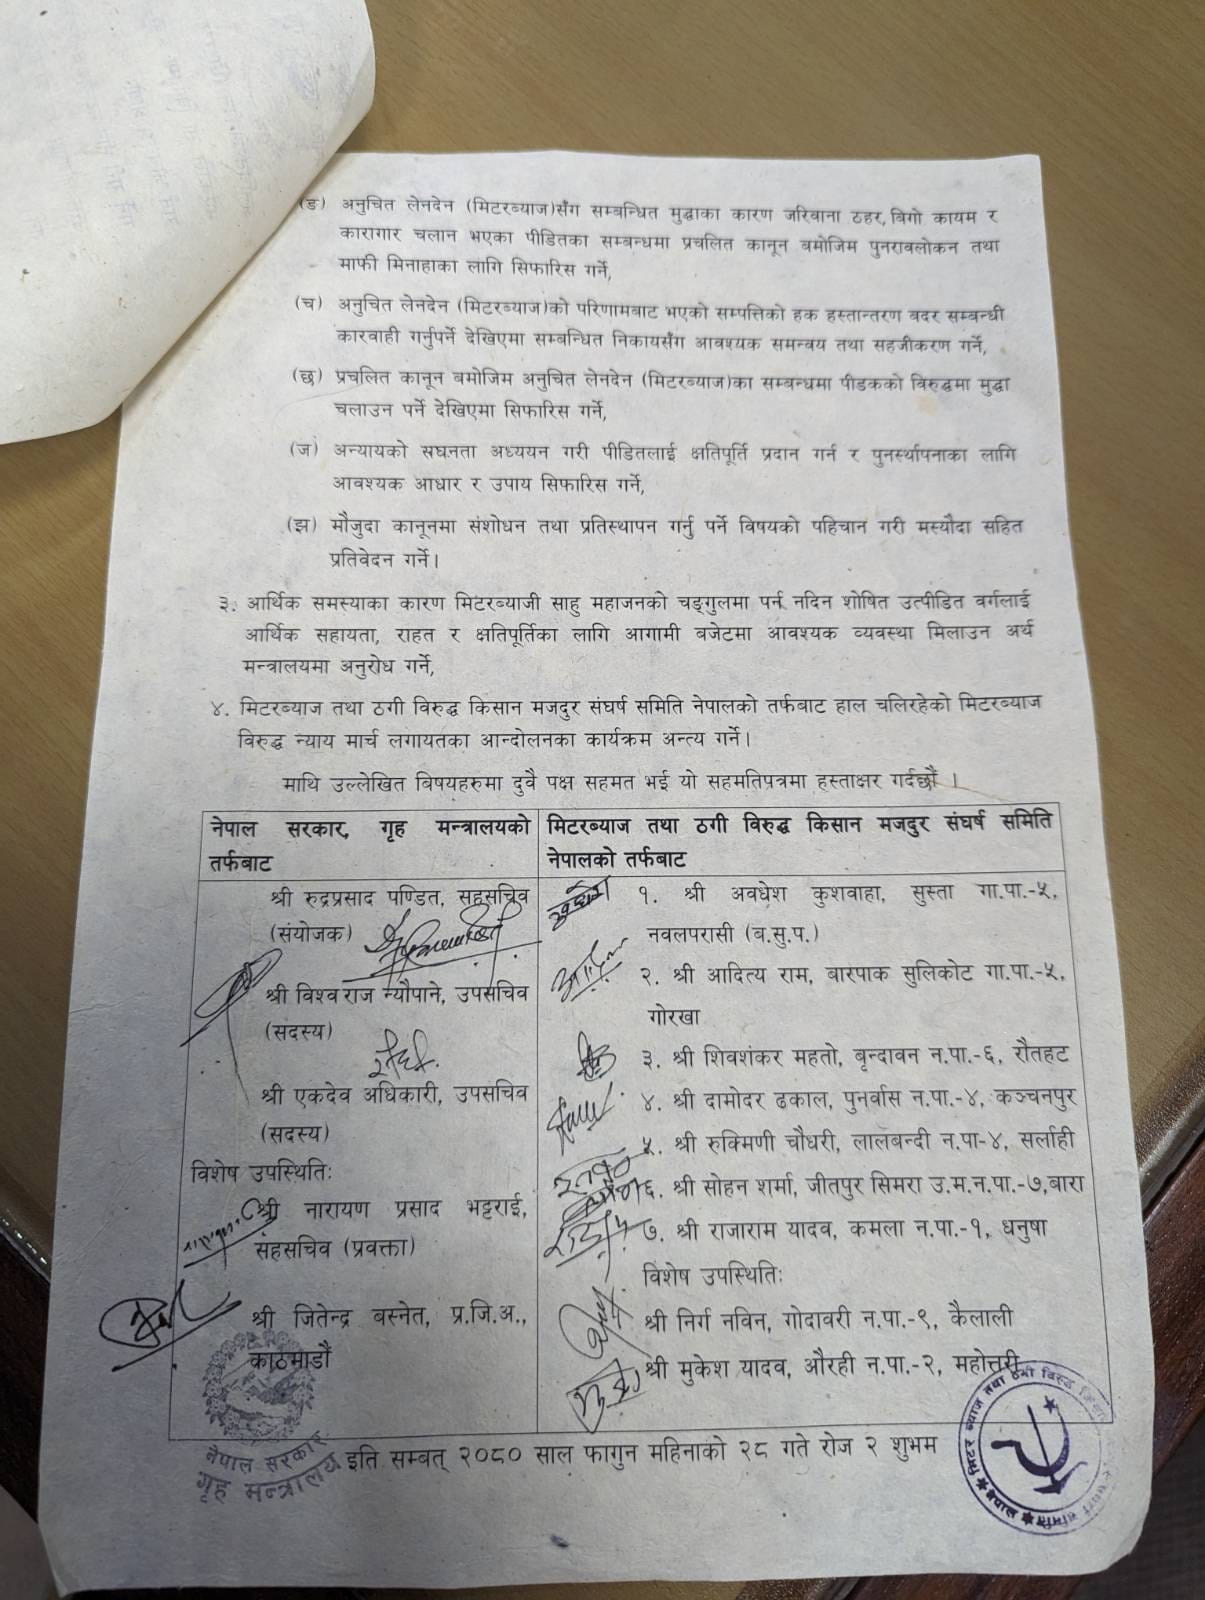 (ङ) अनुचित लेनदेन (मिटरब्याज)सँग सम्बन्धित मुद्दाका कारण जरिवाना ठहर, बिगो कायम र
कारागार चलान भएका पीडितका सम्बन्धमा प्रचलित कानून बमोजिम पुनरावलोकन तथा
माफी मिनाहाका लागि सिफारिस गर्ने,
(च) अनुचित लेनदेन (मिटरब्याज)को परिणामबाट भएको सम्पत्तिको हक हस्तान्तरण बदर सम्बन्धी
कारवाही गर्नुपर्ने देखिएमा सम्बन्धित निकायसँग आवश्यक समन्वय तथा सहजीकरण गर्ने,
(छ) प्रचलित कानून बमोजिम अनुचित लेनदेन (मिटरब्याज)का सम्बन्धमा पीडकको विरुद्धमा मुद्धा
चलाउन पर्ने देखिएमा सिफारिस गर्ने,
(ज) अन्यायको सघनता अध्ययन गरी पीडितलाई क्षतिपूर्ति प्रदान गर्न र पुनर्स्थापनाका लागि
आवश्यक आधार र उपाय सिफारिस गर्ने,
(झ) मौजुदा कानूनमा संशोधन तथा प्रतिस्थापन गर्नु पर्ने विषयको पहिचान गरी मस्यौदा सहित
प्रतिवेदन गर्ने।
३. आर्थिक समस्याका कारण मिटरब्याजी साहु महाजनको चङ्गुलमा पर्न नदिन शोषित उत्पीडित वर्गलाई
आर्थिक सहायता, राहत र क्षतिपूर्तिका लागि आगामी बजेटमा आवश्यक व्यवस्था मिलाउन अर्थ
मन्त्रालयमा अनुरोध गर्ने,
४. मिटरब्याज तथा ठगी विरुद्ध किसान मजदुर संघर्ष समिति नेपालको तर्फबाट हाल चलिरहेको मिटरब्याज
विरुद्ध न्याय मार्च लगायतका आन्दोलनका कार्यक्रम अन्त्य गर्ने।
माथि उल्लेखित बिषयहरुमा दुवै पक्ष सहमत भई यो सहमतिपत्रमा हस्ताक्षर गर्दछौं ।
नेपाल सरकार, गृह मन्त्रालयको
तर्फबाट
श्री रुद्रप्रसाद पण्डित, सहसचिव
(संयोजक)
श्री विश्व राज न्यौपाने, उपसचिव
(सदस्य)
श्री एकदेव अधिकारी, उपसचिव
(सदस्य)
विशेष उपस्थितिः
श्री नारायण प्रसाद भट्टराई,
सहसचिव (प्रवक्ता)
श्री जितेन्द्र बस्नेत, प्र.जि.अ.,
काठमाडौं
मिटरब्याज तथा ठगी विरुद्ध किसान मजदुर संघर्ष समिति
नेपालको तर्फबाट
१. श्री अवधेश कुशवाहा, सुस्ता गा.पा.-५,
नवलपरासी (ब.सु.प.)
२. श्री आदित्य राम, बारपाक सुलिकोट गा.पा.-५,
गोरखा
३. श्री शिवशंकर महतो, बृन्दावन न.पा.-६, रौतहट
४. श्री दामोदर ढकाल, पुनर्वास न.पा.-४, कञ्चनपुर
५. श्री रुक्मिणी चौधरी, लालबन्दी न.पा-४, सर्लाही
६. श्री सोहन शर्मा, जीतपुर सिमरा उ.म.न.पा.-७,बारा
७. श्री राजाराम यादव, कमला न.पा.-१, धनुषा
विशेष उपस्थितिः
श्री निर्ग नविन, गोदावरी न.पा.-९, कैलाली
श्री मुकेश यादव, औरही न.पा.-२, महोत्तरी
इति सम्बत् २०८० साल फागुन महिनाको २८ गते रोज २ शुभम
नेपाल सरकार
गृह मन्त्रालय
मिटर ब्याज तथा ठगी विरुद्ध
नेपाल